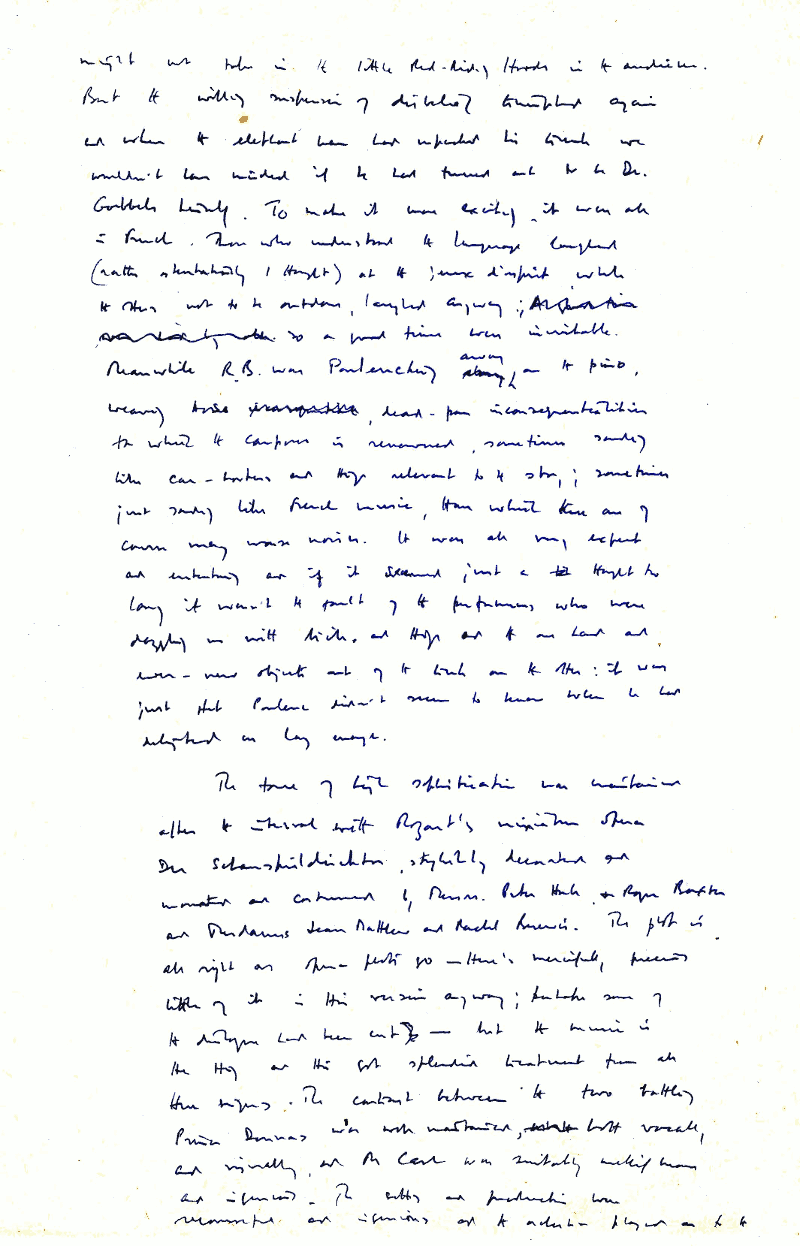 might not take in the little Red-Riding Hoods in the audience.
But the willing suspension of disbelief triumphed again
and when the elephant man had unpacked his trunk we
wouldn't have minded if he had turned out to be Dr.
Goebbels himself. To make it more exciting, it was all
in French. Those who understood the language laughed
(rather ostentatiously I thought) at the jeux d'esprit while
the others not to be outdone, laughed anyway;
so a good time was inevitable.
Meanwhile R.B. was Poulencing away on the piano,
weaving dead-pan inconsequentialities
for which the composer is renowned, sometimes sounding
like car-horns and things relevant to the story; sometimes
just sounding like French music, than which there are of
course many worse noises. It was all very expert
and entertaining and if it seemed just a thought too
long it wasn't the fault of the performers who were
dazzling us with tricks and things on the one hand and
ever-new objects out of the trunk on the other: it was
just that Poulenc didn't seem to know when he had
delighted us long enough.
The tone of high sophistication was maintained
after the interval with Mozart's miniature opera
Der Schauspieldirektor, stylishly decorated and
mounted and costumed by Messrs. Peter & Roger Baxter
and Mesdames Jean Matthew and Rachel. The plot is
all right as opera plots go — there's mercifully precious
little of it in this version anyway; some of
the dialogue had been cut — but the music is
the thing and this got splendid treatment from all
three singers. The contrast between the two battling
Prima Donnas was well maintained, both vocally,
and visually, and Mr was suitably
and. The and production were
resourceful and ingenious and the played on to the